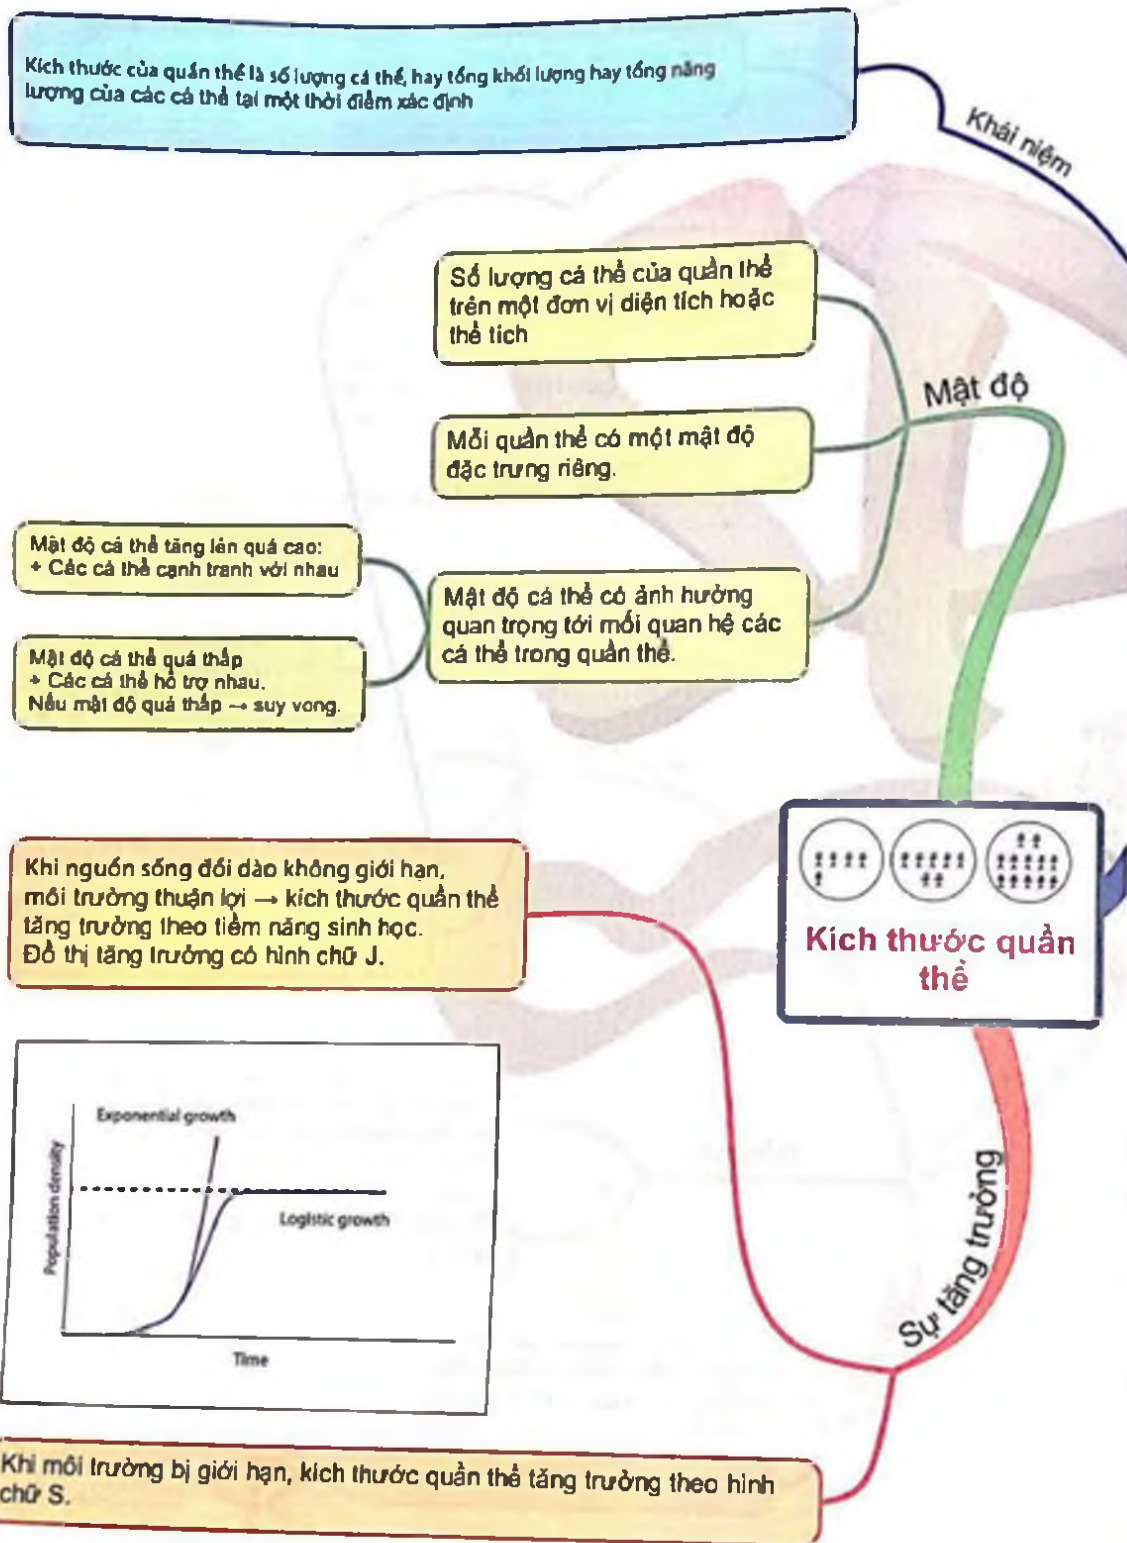 Kích thước của quần thể là số lượng cá thể, hay tổng khối lượng hay tổng năng
lượng của các cá thể tại một thời điểm xác định
Khái niệm
Số lượng cá thể của quần thể
trên một đơn vị diện tích hoặc
thể tích
Mật độ
Mỗi quần thể có một mật độ
đặc trưng riêng.
Mật độ cá thể tăng lên quá cao:
+ Các cá thể cạnh tranh với nhau
Mật độ cá thể có ảnh hưởng
quan trọng tới mối quan hệ các
cá thể trong quần thể.
Mật độ cá thể quá thấp
+ Các cá thể hỗ trợ nhau.
Nếu mật độ quá thấp → suy vong.
Khi nguồn sống dồi dào không giới hạn,
môi trường thuận lợi → kích thước quần thể
tăng trưởng theo tiềm năng sinh học.
Đồ thị tăng trưởng có hình chữ J.
Kích thước quần
thể
Exponential growth
Population density
Logistic growth
Time
Sự tăng trưởng
Khi môi trường bị giới hạn, kích thước quần thể tăng trưởng theo hình
chữ S.